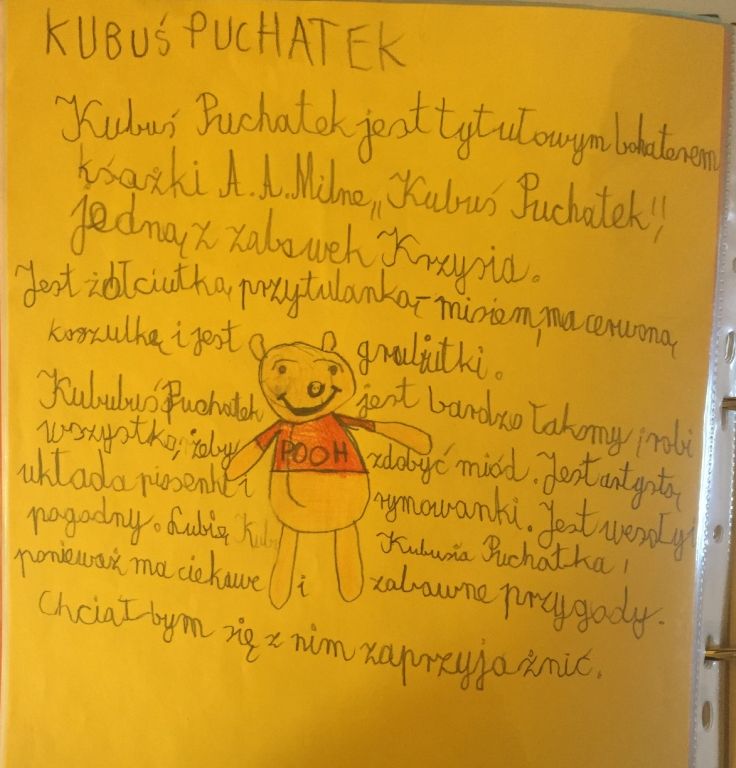 KUBUŚ PUCHATEK
Kubuś Puchatek jest tytułowym bohaterem
książki A. A. Milne „Kubuś Puchatek",
jedną z zabawek Krzysia.
Jest żółciutką przytulanką - misiem, ma cerwoną
koszulkę i jest grubiutki.
Kububuś Puchatek jest bardzo łakomy i robi
wszystko, żeby zdobyć miód. Jest artystą
układa piosenki i rymowanki. Jest wesoły i
pogodny. Lubię Kubusia Puchatka,
ponieważ ma ciekawe i zabawne przygody.
Chciał bym się z nim zaprzyjaźnić.
POOH